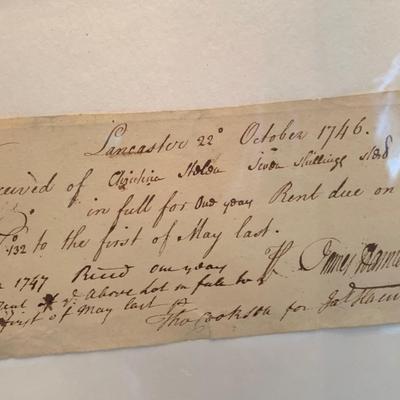 Lancaster 22d October 1746.
ceived of Christina Seven Shillings
in full for One years Rent due on
No. 132 to the first of May last.
1747 Recd one years
of ye above Lot in full to ye
first of May last
Tho Cookson for Jas Ham